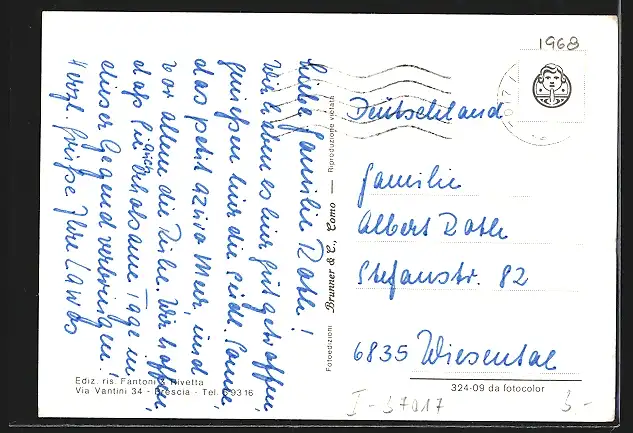 1968
Liebe Familie Roth!
Wir haben es hier gut getroffen,
genießen hier die Seele. Sonne,
das petit azuro Meer, und
vor allem die Ruhe. Wir hoffen,
daß Sie auch erholsame Tage in
dieser Gegend verbringen.
Herzl. Grüße Ihre
Deutschland
Familie
Albert Roth
Stefanstr. 82
6835 Wiesental
Fotoedizioni Brunner & C., Como — Riproduzione vietata
Ediz. ris. Fantoni & Rivetta
Via Vantini 34 - Brescia - Tel. 59316
324-09 da fotocolor
I-37017
3.-